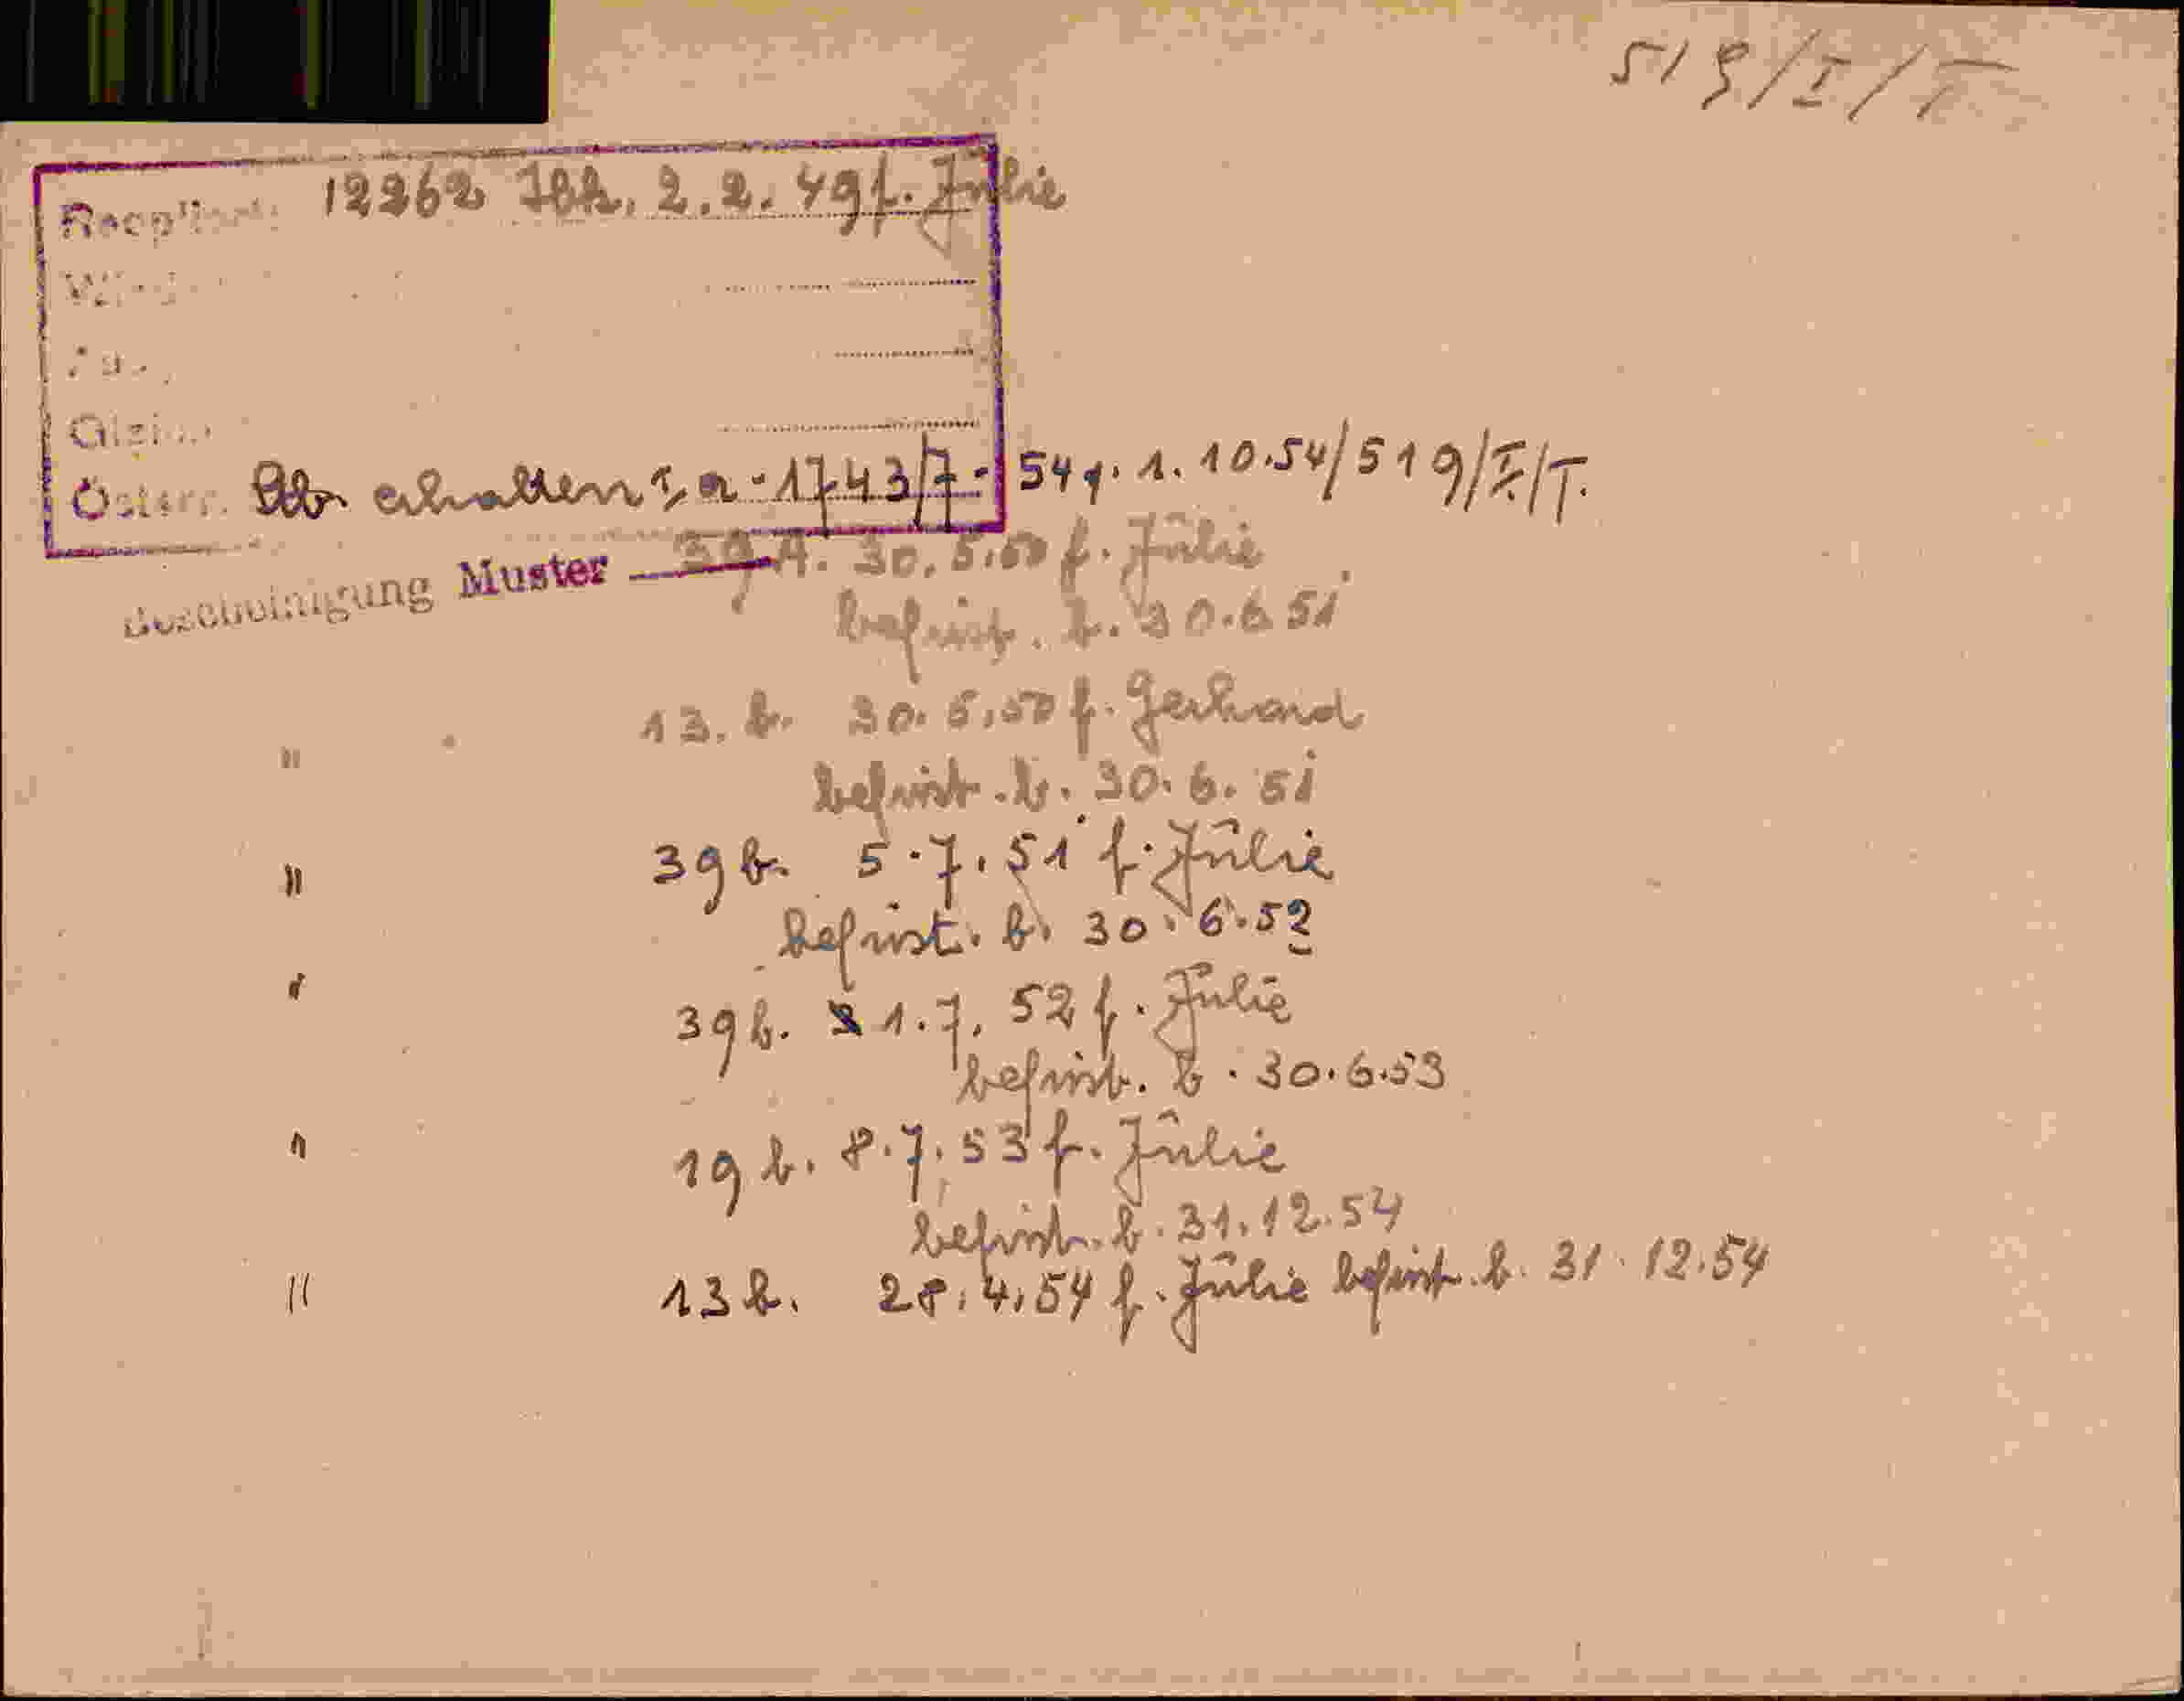 519/I/T
12262 Ibk. 2.2.49 f. Jûlie
Österr. Stb. erhalten I a - 1743/7 - 54 v. 1.10.54/519/I/T.
Bescheinigung Muster 39 A. 30.5.50 f. Jûlie
befrist. b. 30.6.51
" 13. b. 30.5.50 f. Gerhard
befrist. b. 30.6.51
" 39 b. 5.7.51 f. Jûlie
befrist. b. 30.6.52
" 39 b. 1.7.52 f. Jûlie
befrist. b. 30.6.53
" 19 b. 8.7.53 f. Jûlie
befrist. b. 31.12.54
" 13 b. 28.4.54 f. Jûlie befrist. b. 31.12.54